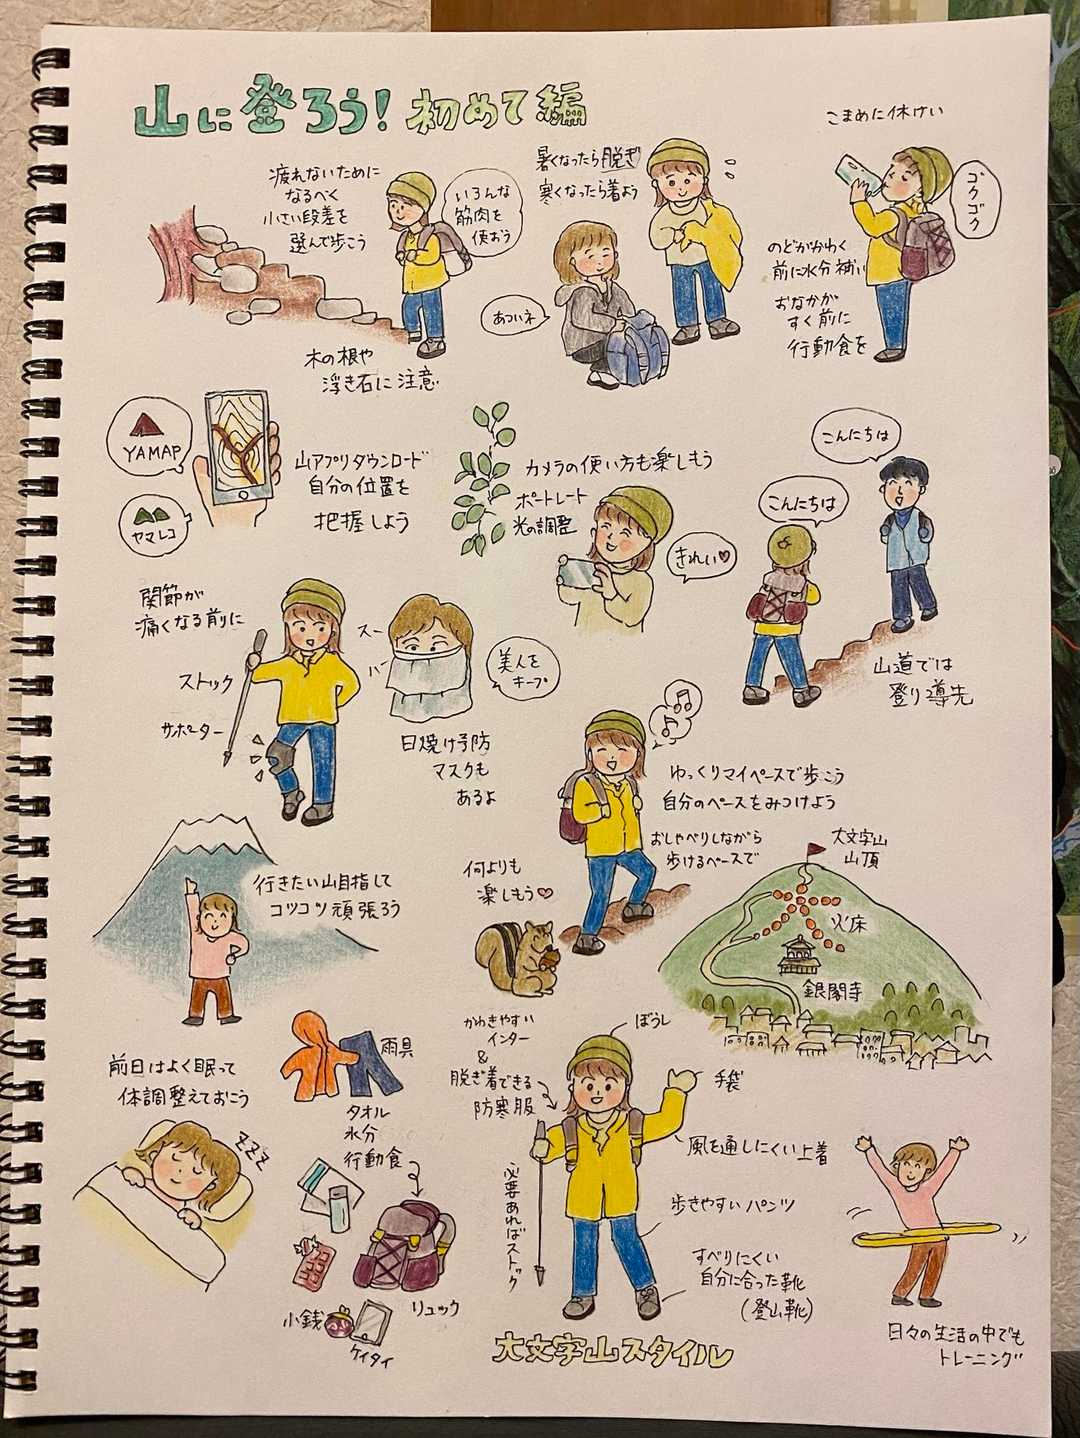 山に登ろう! 初めて編
疲れないために
なるべく
小さい段差を
選んで歩こう
いろんな
筋肉を
使おう
木の根や
浮き石に注意
暑くなったら脱ぎ
寒くなったら着よう
あついネ
こまめに休けい
ゴクゴク
のどがかわく
前に水分補い
おなかが
すく前に
行動食を
YAMAP
ヤマレコ
山アプリダウンロード
自分の位置を
把握しよう
カメラの使い方も楽しもう
ポートレート
光の調整
きれい♡
こんにちは
こんにちは
山道では
登り導先
関節が
痛くなる前に
ストック
サポーター
スー
ハー
美人を
キープ
日焼け予防
マスクも
あるよ
ゆっくりマイペースで歩こう
自分のペースをみつけよう
おしゃべりしながら
歩けるペースで
何よりも
楽しもう♡
行きたい山目指して
コツコツ頑張ろう
大文字山
山頂
火床
銀閣寺
前日はよく眠って
体調整えておこう
ZZZ
雨具
タオル
水分
行動食
リュック
小銭
ケイタイ
かわきやすい
インナー
&
脱ぎ着できる
防寒服
ぼうし
手袋
風を通しにくい上着
必要あればストック
歩きやすいパンツ
すべりにくい
自分に合った靴
(登山靴)
大文字山スタイル
日々の生活の中でも
トレーニング